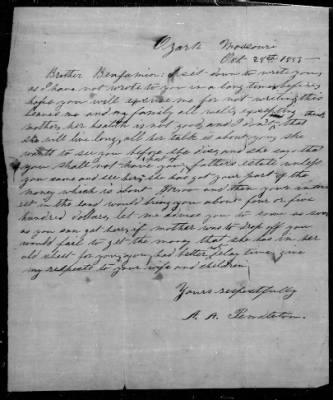 Ozark Missouri
Oct 28th 1885
Brother Benjamin: I sit down to write you
as I have not wrote to you in a long time before I
hope you will excuse me for not writing this
leaves me and my family all well, except
mother, her health is not good and I that
she will live long, all her talk is about you she
wants to see you before she dies, and she says that
you shall not have your part of fathers estate unless
you come and see her, she has got your part of the
money which is about and then your inter
est in the land would bring you about four or five
hundred dollars, let me advise you to come as soon
as you can get here, if mother was to drop off you
would fail to get the money that she has in her
old chest for you, you had better delay time, give
my respects to your wife and children
Yours respectfully
A. A. Pendleton.